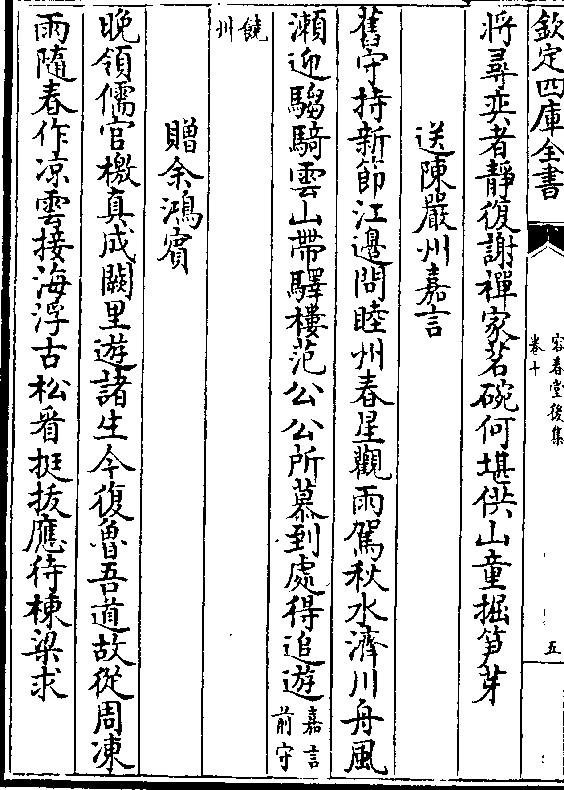 欽定四庫全書
容春堂後集
卷十
五
將尋奕者靜復謝禪家茗碗何堪供山童掘笋芽
送陳嚴州嘉言
舊守持新節江邉問睦州春星觀雨駕秋水濟川舟風
瀬迎騶騎雲山帶驛樓范公公所慕到處得追遊嘉言
前守
饒
州
贈余鴻賓
晚領儒官檄真成闕里遊諸生今復魯吾道故從周凍
雨隨春作凉雲接海浮古松看挺拔應待棟梁求